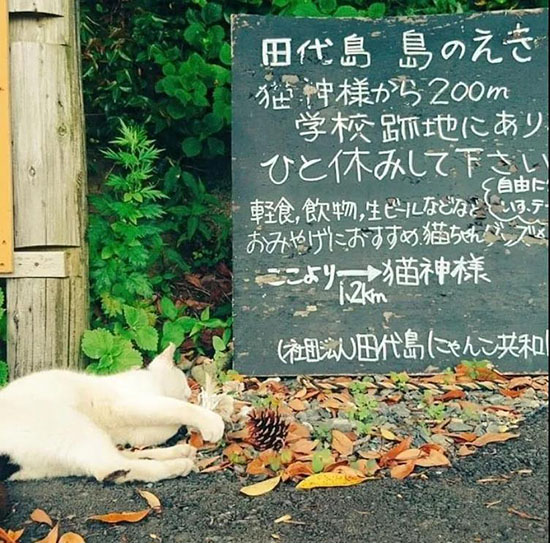 田代島 島のえき
猫神様から200m
学校跡地にあり
ひと休みして下さい
自由に
軽食,飲物,生ビールなどなど
いす,テー
おみやげにおすすめ.猫ちゃん
ここより→猫神様
1.2km
(社団法人)田代島にゃんこ共和